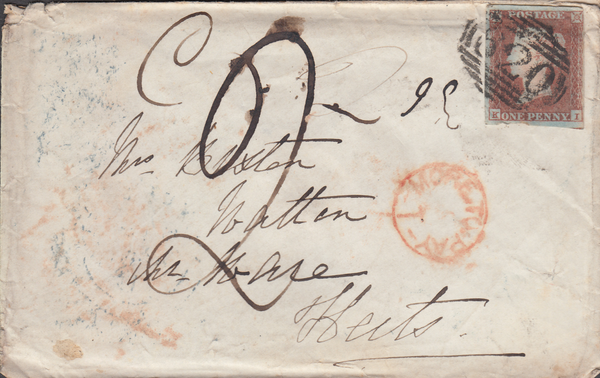 POSTAGE
ONE PENNY
2
MORE TO PAY
Mrs Buxton
Watton
Nr Ware
Herts.